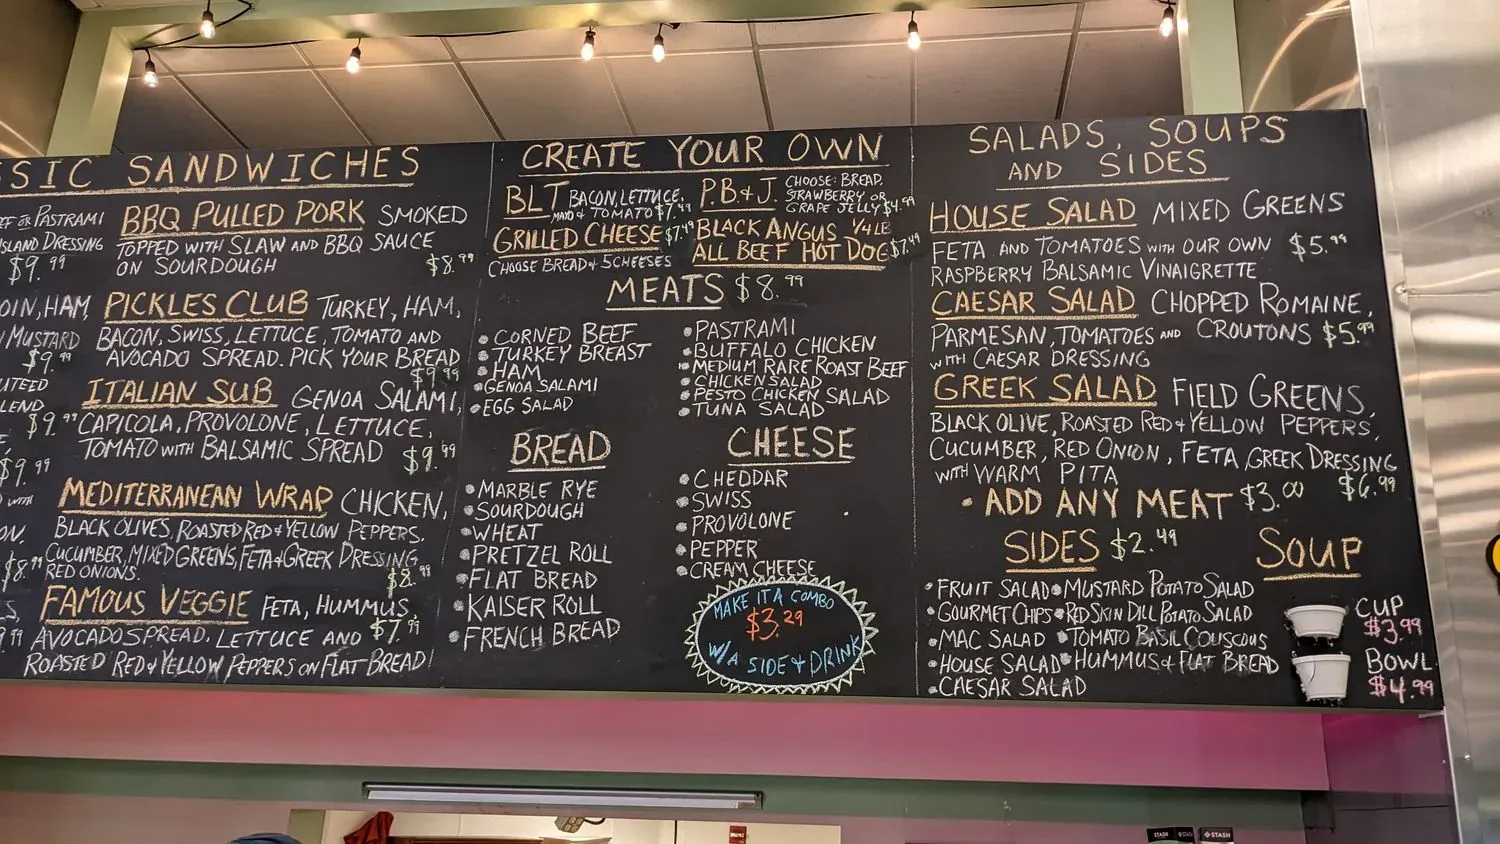 SIC SANDWICHES
PASTRAMI
ISLAND DRESSING
$9.99
OIN, HAM,
MUSTARD
$9.99
$9.99
$9.99
WITH
ON.
$8.99
BBQ PULLED PORK SMOKED
TOPPED WITH SLAW AND BBQ SAUCE
ON SOURDOUGH $8.99
PICKLES CLUB TURKEY, HAM,
BACON, SWISS, LETTUCE, TOMATO AND
AVOCADO SPREAD. PICK YOUR BREAD
$9.99
ITALIAN SUB GENOA SALAMI,
CAPICOLA, PROVOLONE, LETTUCE,
TOMATO WITH BALSAMIC SPREAD $9.99
MEDITERRANEAN WRAP CHICKEN,
BLACK OLIVES, ROASTED RED & YELLOW PEPPERS.
CUCUMBER, MIXED GREENS, FETA & GREEK DRESSING
RED ONIONS. $8.99
FAMOUS VEGGIE FETA, HUMMUS,
AVOCADO SPREAD. LETTUCE AND $7.99
ROASTED RED & YELLOW PEPPERS ON FLAT BREAD!
CREATE YOUR OWN
BLT BACON, LETTUCE,
MAYO & TOMATO $7.49
GRILLED CHEESE $7.49
CHOOSE BREAD & 5 CHEESES
P.B. & J. CHOOSE: BREAD,
STRAWBERRY OR
GRAPE JELLY $4.99
BLACK ANGUS 1/4 LB
ALL BEEF HOT DOG $7.49
MEATS $8.99
• CORNED BEEF
• TURKEY BREAST
• HAM
• GENOA SALAMI
• EGG SALAD
• PASTRAMI
• BUFFALO CHICKEN
• MEDIUM RARE ROAST BEEF
• CHICKEN SALAD
• PESTO CHICKEN SALAD
• TUNA SALAD
BREAD
• MARBLE RYE
• SOURDOUGH
• WHEAT
• PRETZEL ROLL
• FLAT BREAD
• KAISER ROLL
• FRENCH BREAD
CHEESE
• CHEDDAR
• SWISS
• PROVOLONE
• PEPPER
• CREAM CHEESE
MAKE IT A COMBO
$3.29
W/ A SIDE & DRINK
SALADS, SOUPS
AND SIDES
HOUSE SALAD MIXED GREENS
FETA AND TOMATOES WITH OUR OWN $5.99
RASPBERRY BALSAMIC VINAIGRETTE
CAESAR SALAD CHOPPED ROMAINE,
PARMESAN, TOMATOES AND CROUTONS $5.99
WITH CAESAR DRESSING
GREEK SALAD FIELD GREENS,
BLACK OLIVE, ROASTED RED & YELLOW PEPPERS,
CUCUMBER, RED ONION, FETA, GREEK DRESSING
WITH WARM PITA $6.99
• ADD ANY MEAT $3.00
SIDES $2.49
• FRUIT SALAD • MUSTARD POTATO SALAD
• GOURMET CHIPS • RED SKIN DILL POTATO SALAD
• MAC SALAD • TOMATO BASIL COUSCOUS
• HOUSE SALAD • HUMMUS & FLAT BREAD
• CAESAR SALAD
SOUP
CUP
$3.99
BOWL
$4.99
STASH
STASH
STASH